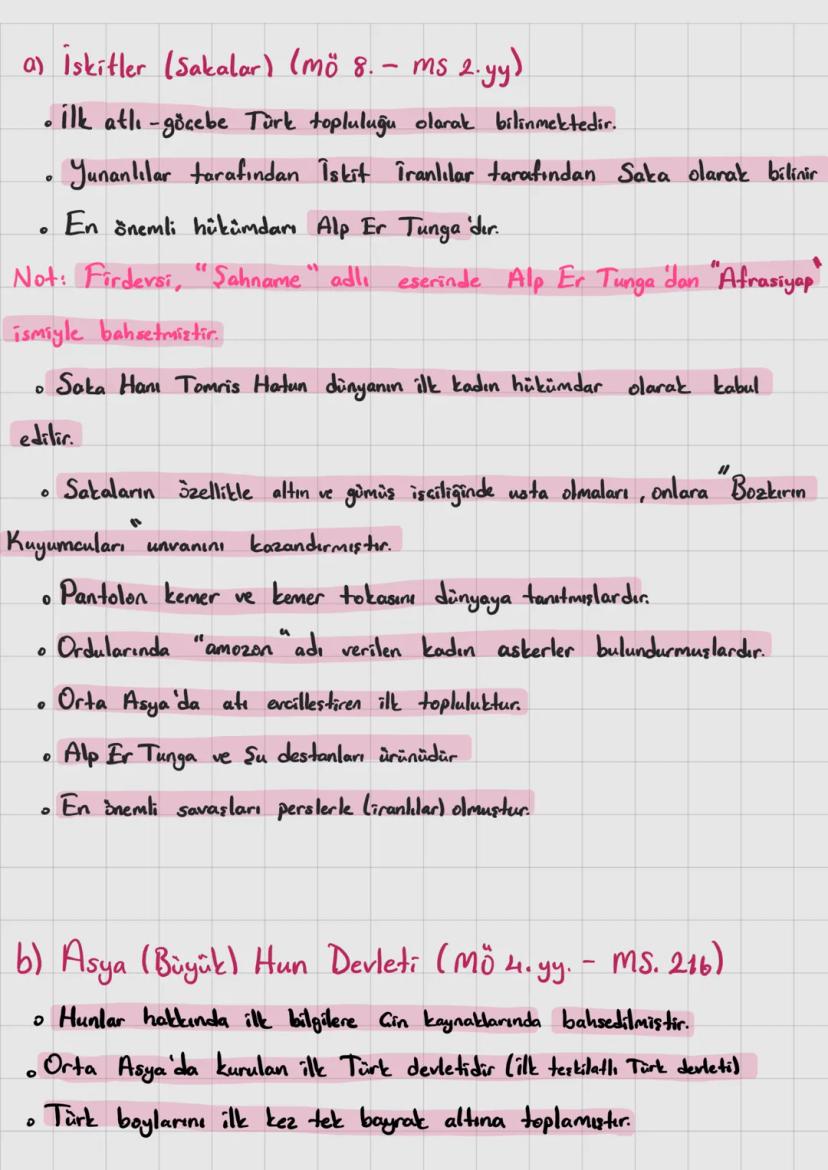 a) İskitler (Sakalar) (MÖ 8. - MS 2.yy)
• İlk atlı-göçebe Türk topluluğu olarak bilinmektedir.
• Yunanlılar tarafından İskit İranlılar tarafından Saka olarak bilinir
• En önemli hükümdarı Alp Er Tunga'dır.
Not: Firdevsi, "Şahname" adlı eserinde Alp Er Tunga'dan "Afrasiyap"
ismiyle bahsetmiştir.
• Saka Hanı Tomris Hatun dünyanın ilk kadın hükümdar olarak kabul
edilir.
• Sakaların özellikle altın ve gümüş işçiliğinde usta olmaları, onlara "Bozkırın
Kuyumcuları" unvanını kazandırmıştır.
• Pantolon kemer ve kemer tokasını dünyaya tanıtmışlardır.
• Ordularında "amozon" adı verilen kadın askerler bulundurmuşlardır.
• Orta Asya'da atı evcilleştiren ilk topluluktur.
• Alp Er Tunga ve Şu destanları ürünüdür
• En önemli savaşları perslerle (iranlılar) olmuştur.
b) Asya (Büyük) Hun Devleti (MÖ 4. yy. - MS. 216)
• Hunlar hakkında ilk bilgilere Çin kaynaklarında bahsedilmiştir.
• Orta Asya'da kurulan ilk Türk devletidir (ilk teşkilatlı Türk devleti)
• Türk boylarını ilk kez tek bayrak altına toplamıştır.